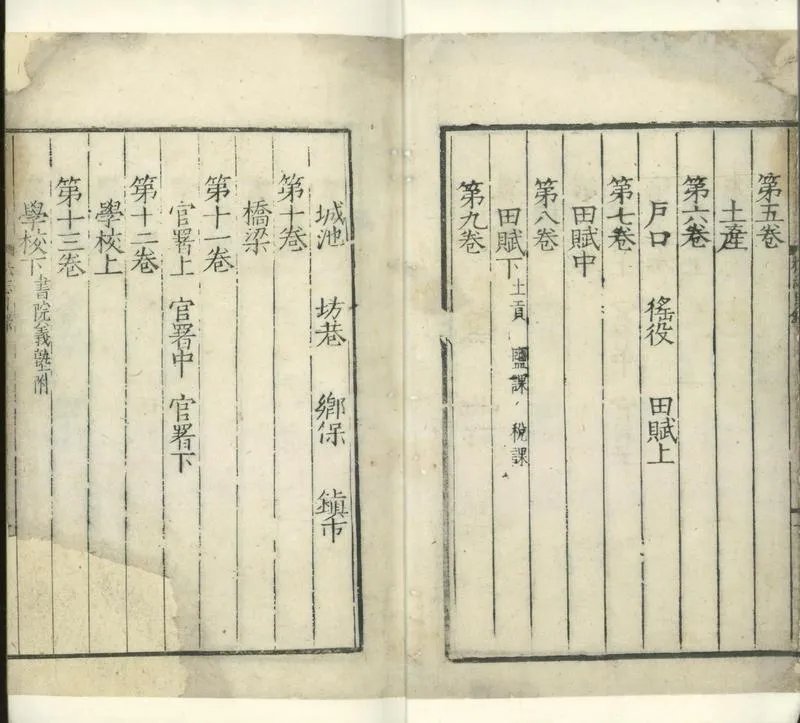 第五卷
土產
第六卷
戶口 徭役 田賦上
第七卷
田賦中
第八卷
田賦下 土貢 鹽課 稅課
第九卷
城池 坊巷 鄉保 鎮市
第十卷
橋梁
第十一卷
官署上 官署中 官署下
第十二卷
學校上
第十三卷
學校下 書院義塾附